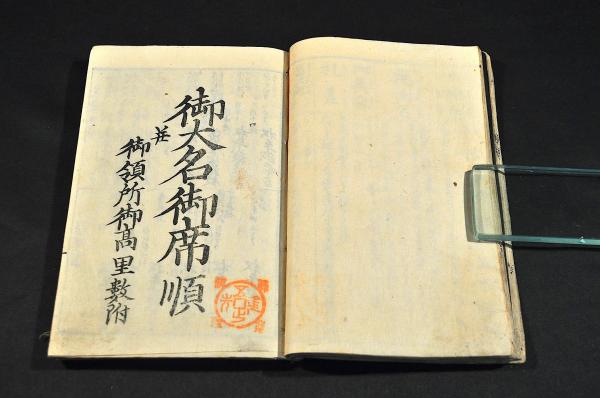 御大名御席順
並
御領所御高里数附